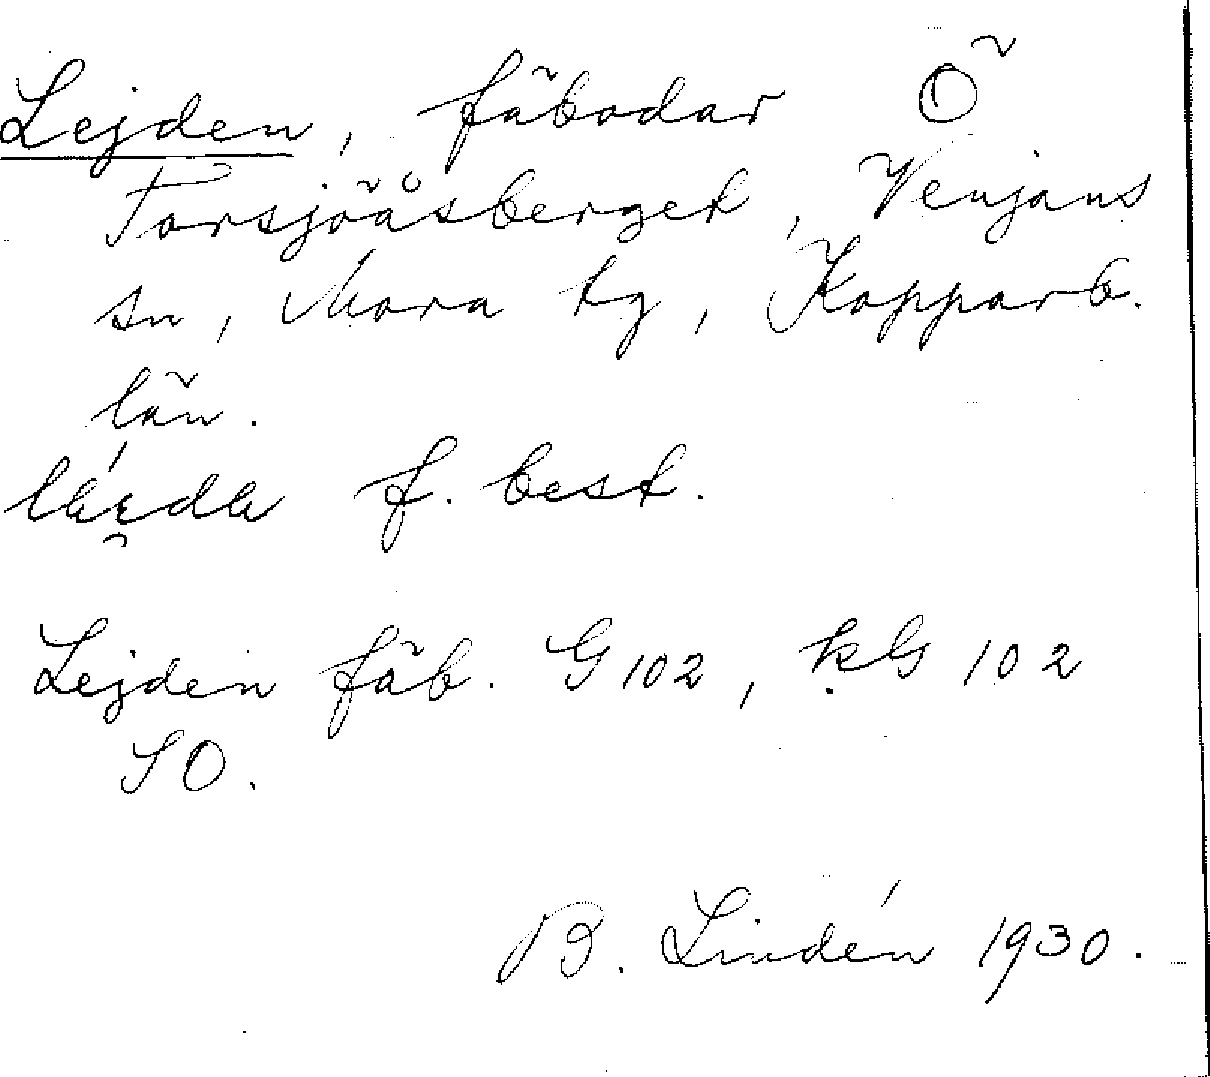 Lejden, fäbodar Ö
Torsjöåsberget, Venjans
sn, Mora tg, Kopparb.
län.
f. best.
Lejden fäb. G 102, kG 102
SO.
B. Lindén 1930.